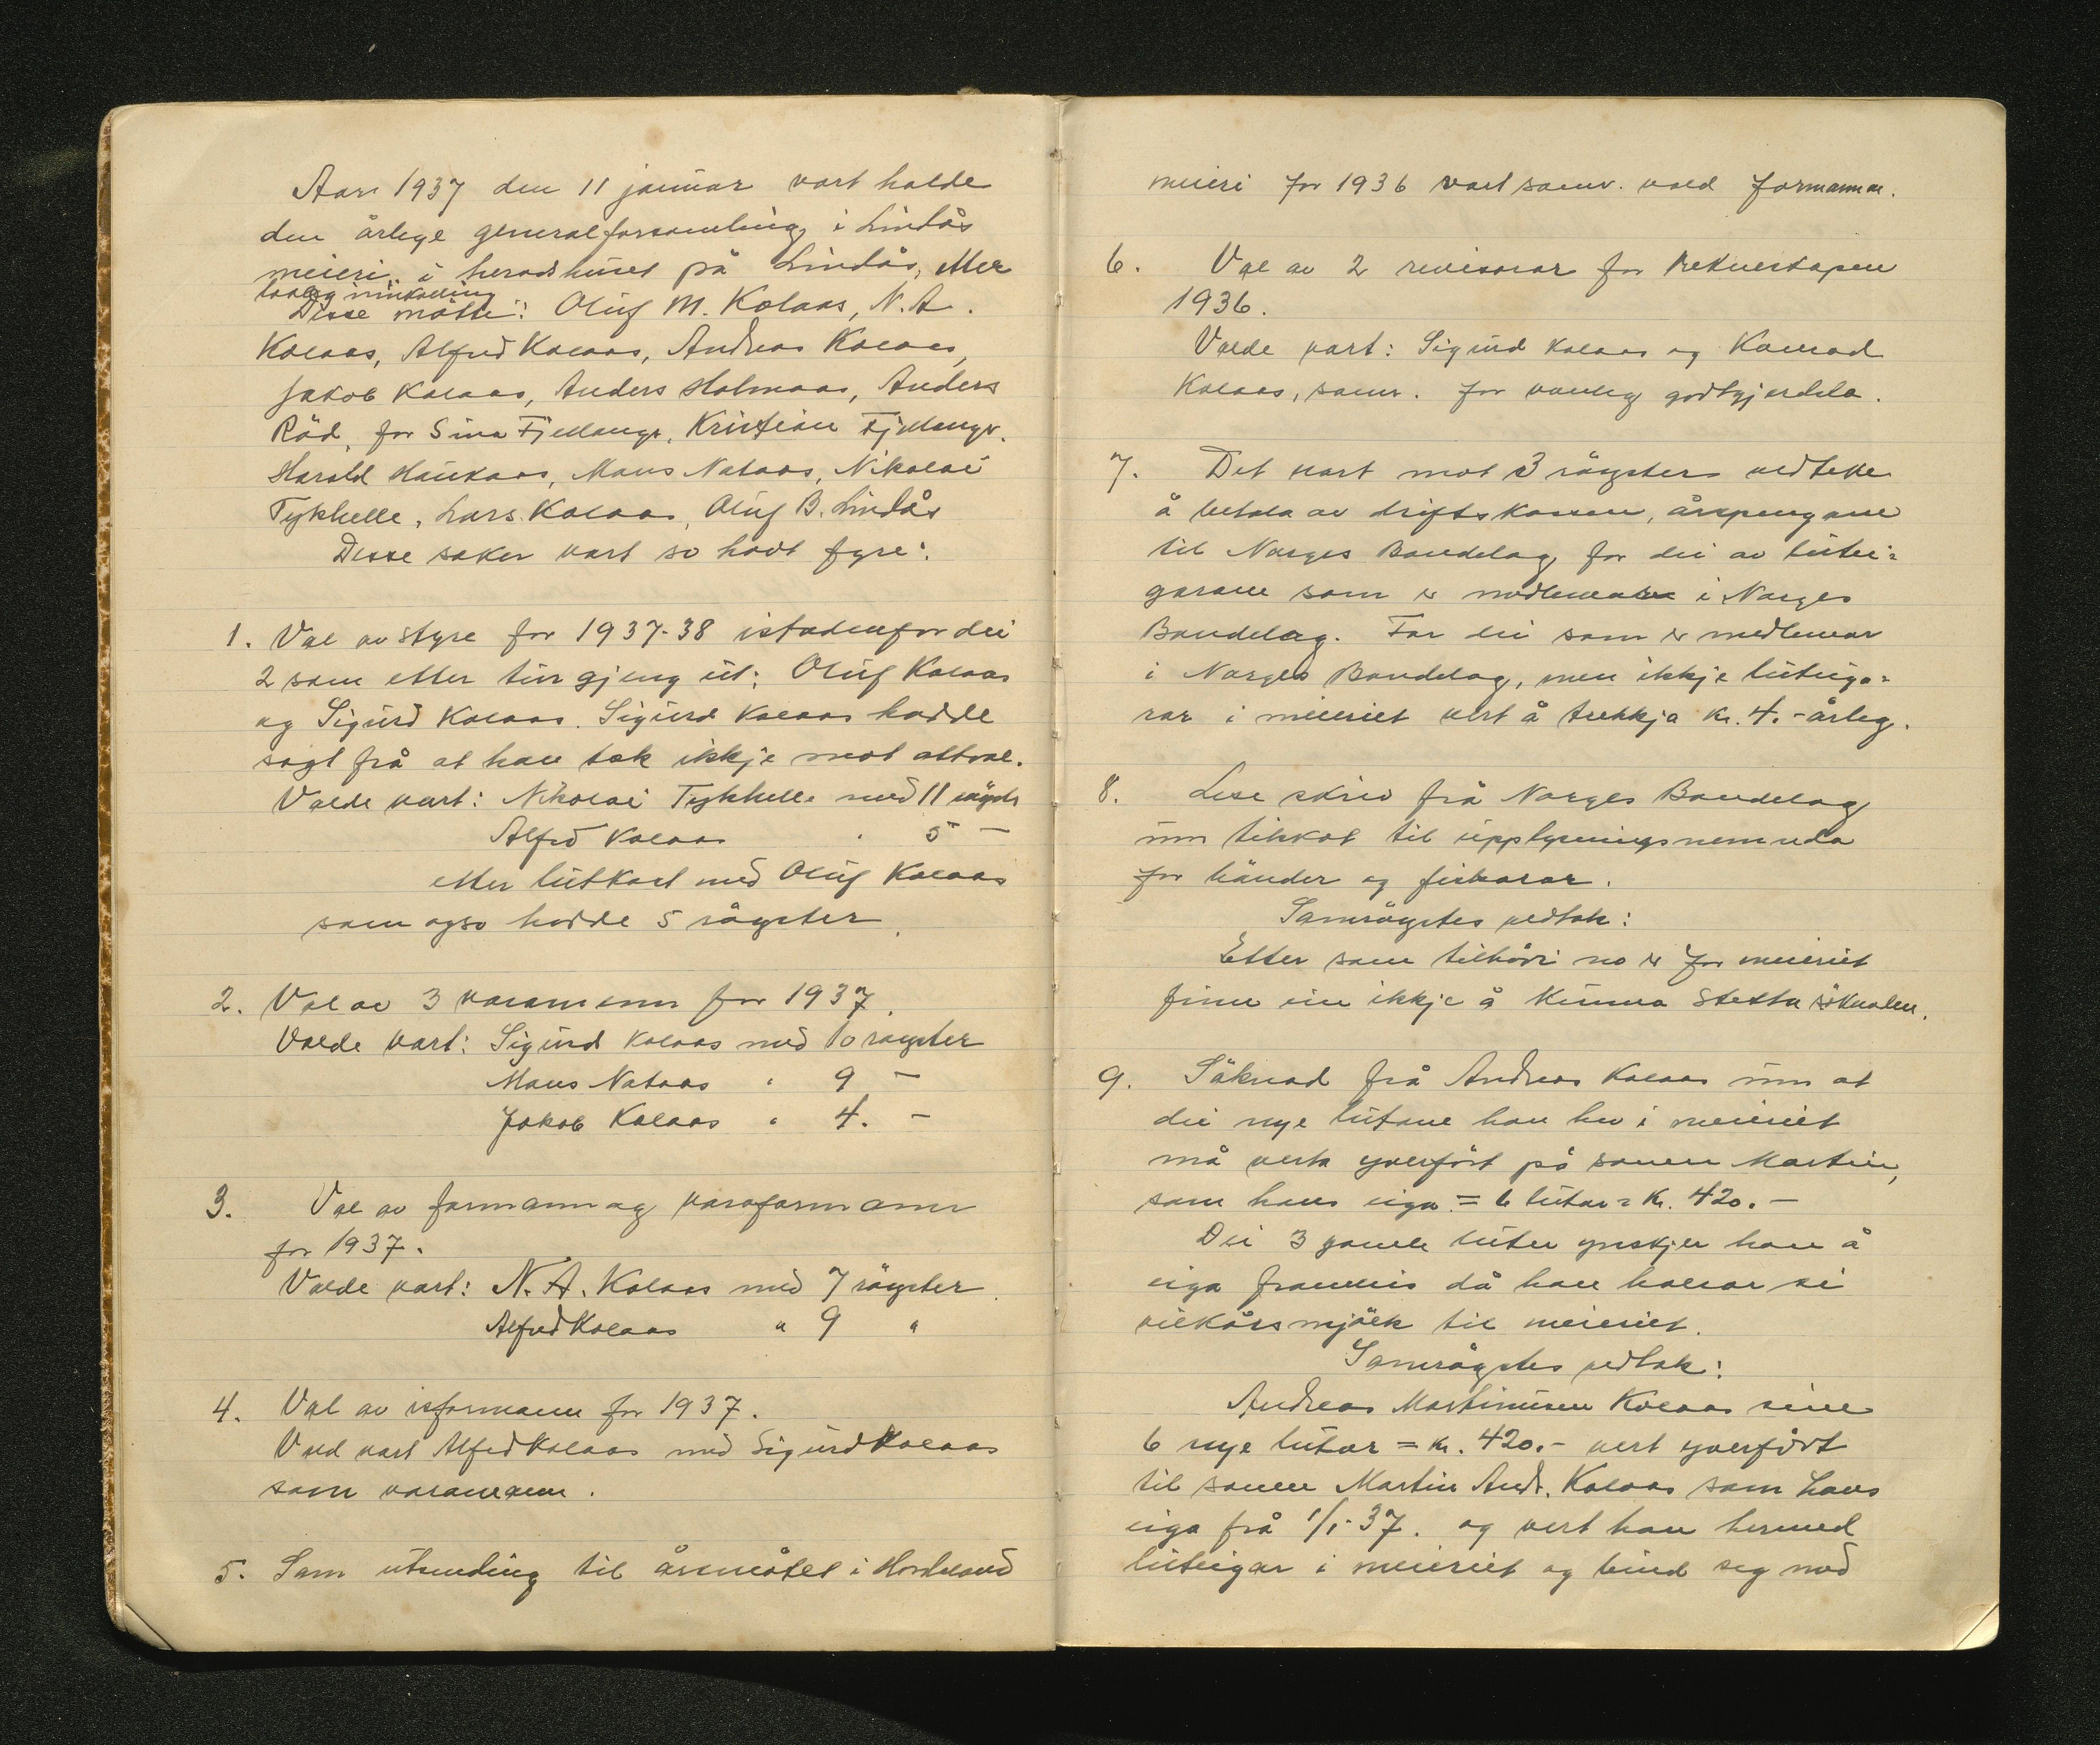 Aar 1937 den 11 januar vart halde
den årlege generalforsamling i Lindås
meieri i heradshuset på Lindås, etter
lovleg innkalling
Disse møtte: Oluf M. Kolaas, N. A.
Kolaas, Alfred Kolaas, Andreas Kolaas,
Jakob Kolaas, Anders Holmaas, Anders
Röd, for Sina Fjellanger, Kristian Fjellanger.
Harald Haukaas, Mans Nataas, Nikolai
Tykhelle, Lars Kolaas, Oluf B. Lindås
Desse saker vart so havt fyre:
1. Val av styre for 1937-38 istadenfor dei
2 som etter tur gjeng ut: Oluf Kolaas
og Sigurd Kolaas. Sigurd Kolaas hadde
sagt frå at han tok ikkje mot attval.
Valde vart: Nikolai Tykhelle med 11 röyster
Alfred Kolaas " 5 -
etter lutkast med Oluf Kolaas
som ogso hadde 5 röyster.
2. Val av 3 varamenn for 1937.
Valde vart: Sigurd Kolaas med 10 röyster
Mans Nataas " 9 -
Jakob Kolaas " 4. -
3. Val av formann og varaformann
for 1937.
Valde vart: N. A. Kolaas med 7 röyster.
Alfred Kolaas " 9 "
4. Val av isformann for 1937.
Vald vart Alfred Kolaas med Sigurd Kolaas
som varamann.
5. Som utsending til årsmøtet i Hordaland
meieri for 1936 vart samr. vald formannen.
6. Val av 2 revisorar for rekneskapen
1936.
Valde vart: Sigurd Kolaas og Konrad
Kolaas, samr. for vanleg godtgjerdsla.
7. Det vart mot 3 röyster vedteke
å betala av driftskassen, årspengane
til Norges Bondelag for dei av lutei=
garane som er medlemar i Norges
Bondelag. For dei som er medlemar
i Norges Bondelag, men ikkje luteiga=
rar i meieriet vert å trekkja kr. 4.- årleg.
8. Lese skriv frå Norges Bondelag
um tilskot til upplysningsnemnda
for bønder og fiskarar.
Samröystes vedtak:
Etter som tilhövi no er for meieriet
finn ein ikkje å kunna stetta söknaden.
9. Söknad frå Andreas Kolaas um at
dei nye lutane han hev i meieriet
må verta yverfört på sonen Martin,
som hans eiga = 6 lutar = Kr. 420.-
Dei 3 gamle luter ynskjer han å
eiga framleis då han leverar si
vilkårsmjölk til meieriet.
Samröystes vedtak:
Andreas Martinusen Kolaas sine
6 nye lutar = kr. 420.- vert yverfört
til sonen Martin Andr. Kolaas som hans
eiga frå 1/1-37. og vert han hermed
luteigar i meieriet og bind seg med